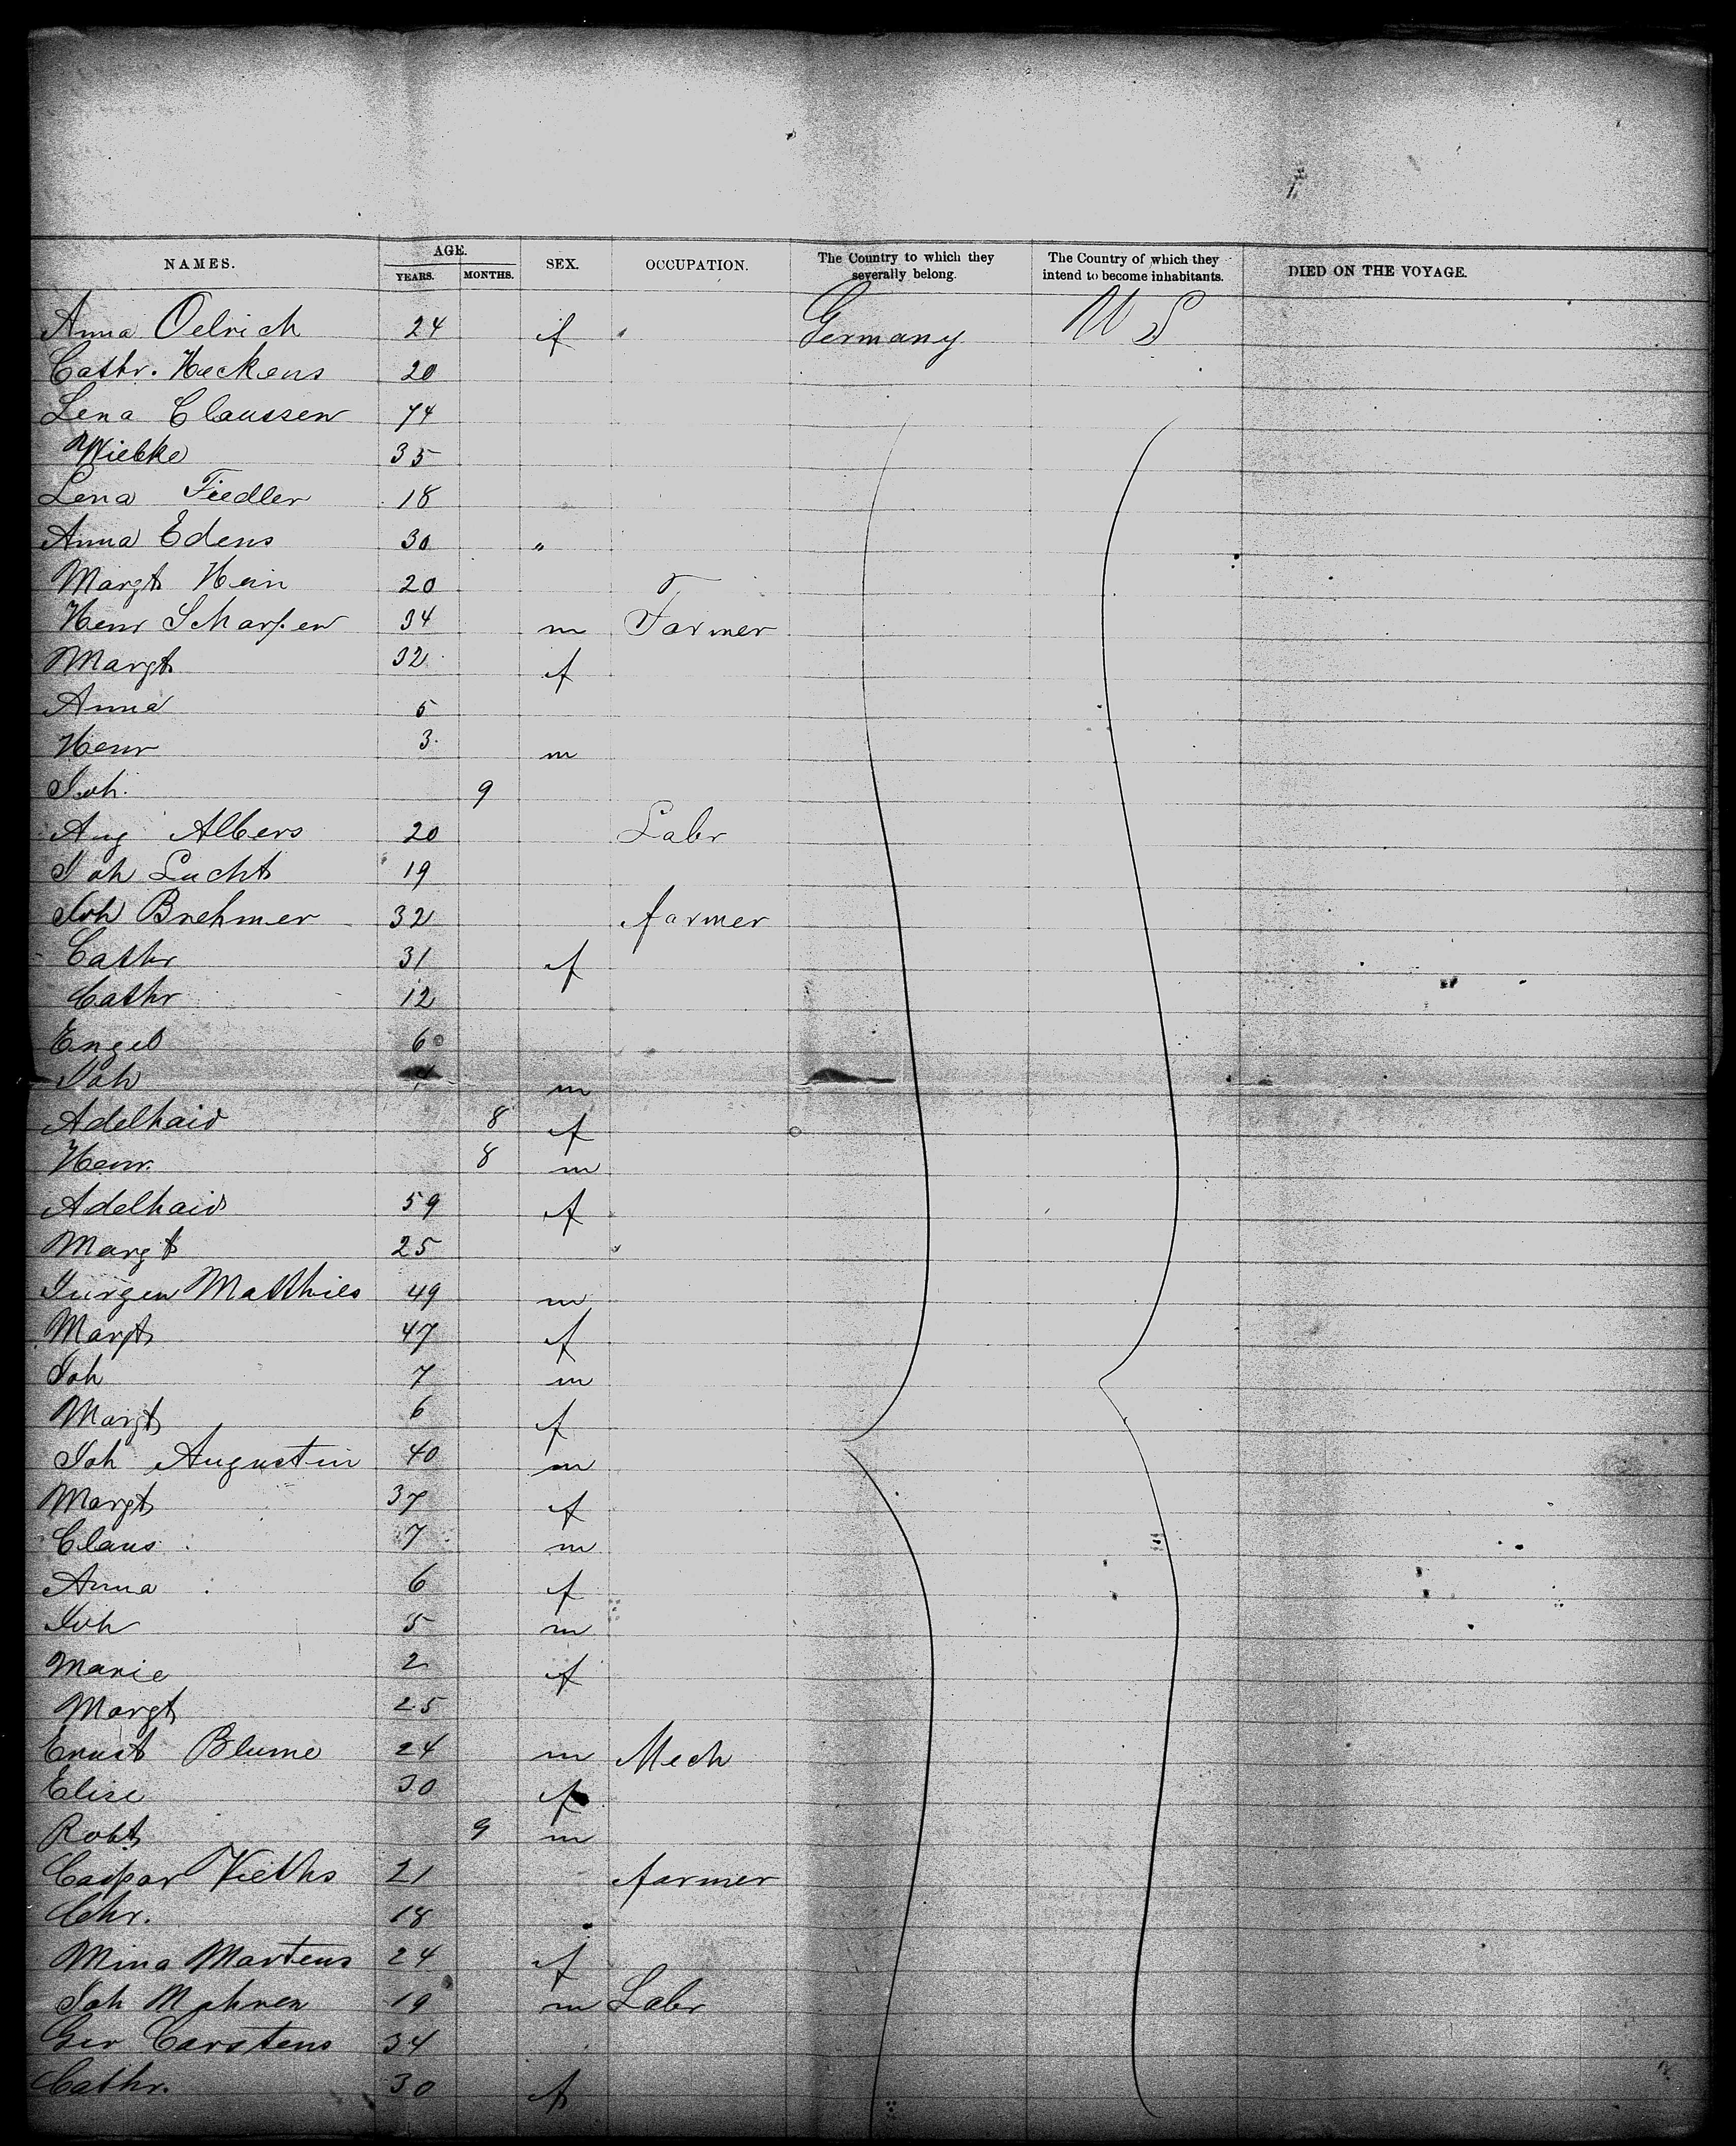 NAMES. AGE. YEARS. MONTHS. SEX. OCCUPATION. The Country to which they severally belong. The Country of which they intend to become inhabitants. DIED ON THE VOYAGE.
Anna Oelrich 24 f Germany U S
Cathr. Heckens 20
Lena Claussen 74
Wiebke 35
Lena Fiedler 18
Anna Edens 30 "
Margt Hein 20
Henr Scharpen 34 m Farmer
Margt 32 f
Anna 5
Henr 3 m
Joh. 9
Aug Albers 20 Labr
Joh Lucht 19
Joh Brehmer 32 farmer
Cathr 31 f
Cathr 12
Engel 6
Joh m
Adelhaid 8 f
Henr. 8 m
Adelhaid 59 f
Margt 25
Jurgen Matthies 49 m
Margt 47 f
Joh 7 m
Margt 6 f
Joh Augustin 40 m
Margt 37 f
Claus 7 m
Anna 6 f
Joh 5 m
Marie 2 f
Margt 25
Ernst Blume 24 m Mech
Elise 30 f
Robt 9 m
Caspar Vieths 21 farmer
Chr. 18
Mina Martens 24 f
Joh 19 m Labr
Ger Carstens 34
Cathr. 30 f